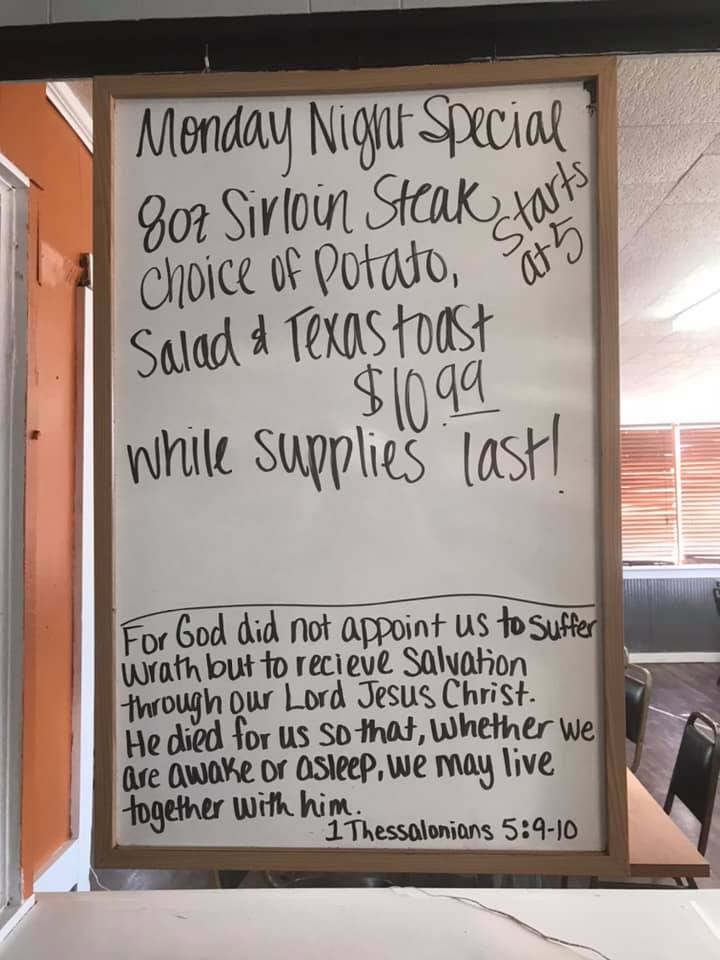 Monday Night Special
8oz Sirloin Steak
Starts
at 5
Choice of Potato,
Salad & Texas toast
$10.99
while supplies last!
For God did not appoint us to suffer
wrath but to recieve Salvation
through our Lord Jesus Christ.
He died for us so that, whether we
are awake or asleep, we may live
together with him.
1 Thessalonians 5:9-10